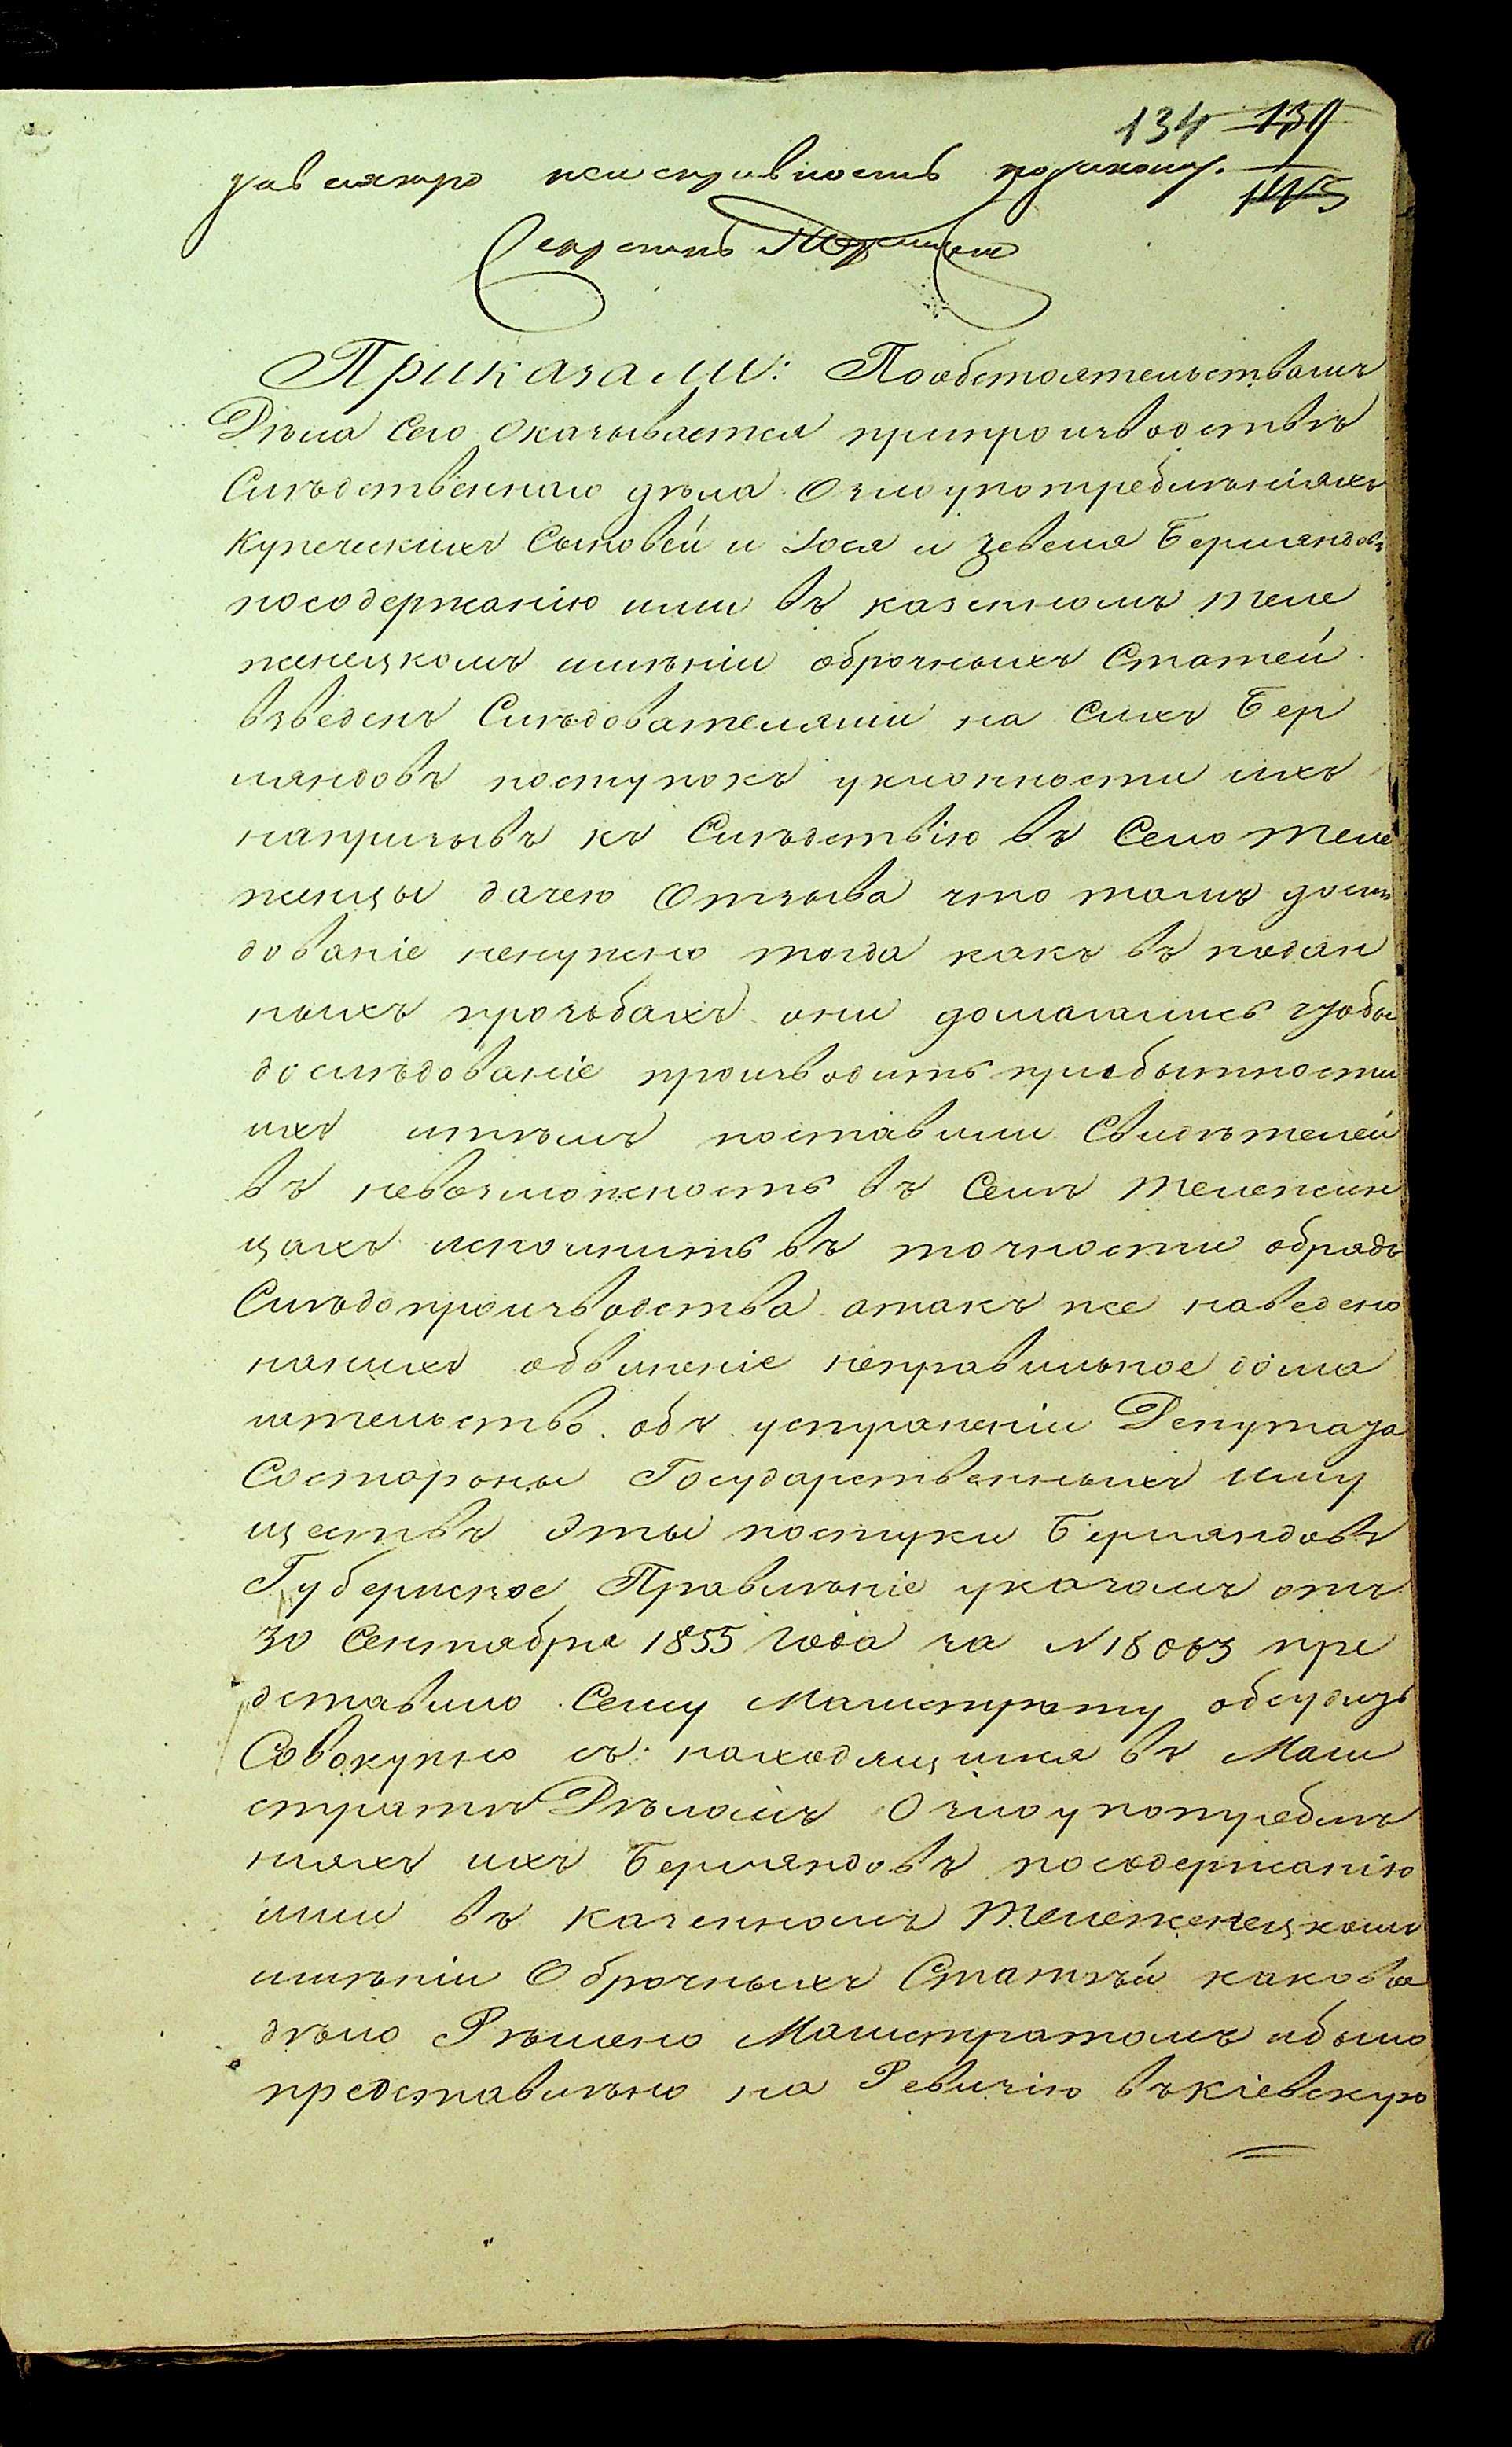 134 139
145
неисправность
Секретарь
Приказали: Пообстоятельствамъ
Дѣла Сего Оказывается припроизводствѣ
Слѣдственнаго дѣла Озлоупотребленіяхъ
Купеческихъ Сыновей и Іося и Зевеля Берляндовъ
посодержанію ими въ казенномъ теле
женецкомъ имѣніи оброчныхъ Статей
взведенъ Слѣдователями на Сихъ Бер
ляндовъ поступокъ уклонности ихъ
напризывъ къ Слѣдствію въ Село Теле
женцы дачею Отзыва что тамъ дослѣ
дованіе ненужно тогда какъ въ подан
ныхъ прозьбахъ они домагались чтобы
дослѣдованіе производить прибытности
ихъ итѣмъ поставили Свидѣтелей
въ невозможность въ Селѣ Тележин
цахъ исполнить въ точности обрядъ
Слѣдопроизводства атакъ же наведено
нанихъ обвиненіе неправильное дома
гательство объ устраненіи Депутата
Состороны Государственныхъ иму
ществъ Эты поступки Берляндовъ
Губернское Правленіе указомъ отъ
30 Сентября 1855 года за №18063 пре
дставило Сему Магистрату обсудить
Совокупно съ находящимся въ Маги
стратѣ Дѣломъ Озлоупотребле
ніяхъ ихъ Берляндовъ посодержанію
ими въ казенномъ Тележенецкомъ
имѣніи Оброчныхъ Статѣй каково
дѣло Рѣшено Магистратомъ ибыло
представлено на Ревизію въкіевскую